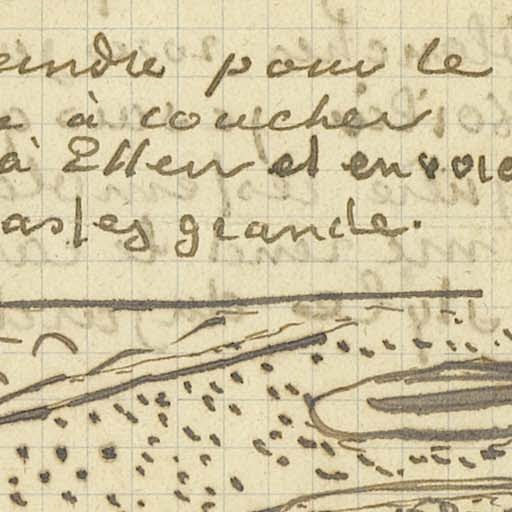 eindre pour le
e à coucher
à Ellen et envoie
asses grande.